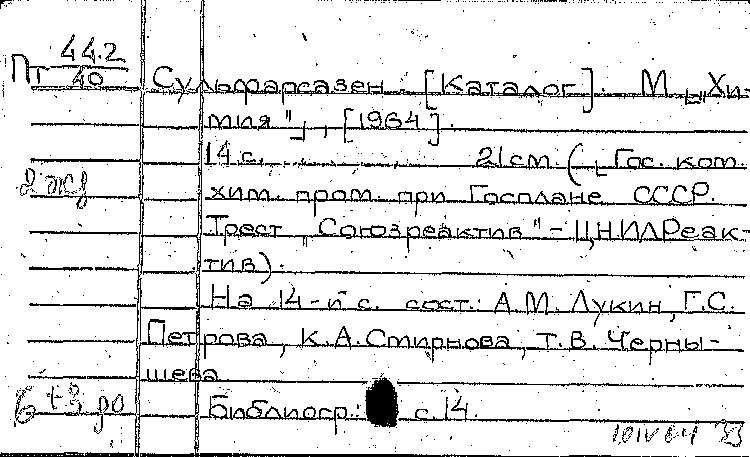 Пт 44.2
40
Сульфарсазен. [Каталог]. М., „Хи-
мия", [1964].
14 с. 21 см. (Гос. ком.
хим. пром. при Госплане СССР.
Трест „Союзреактив" - ЦНИЛРеак-
тив).
На 14-й с. сост.: А.М. Лукин, Г.С.
Петрова, К.А. Смирнова, Т.В. Черны-
шева
Библиогр.: с. 14.